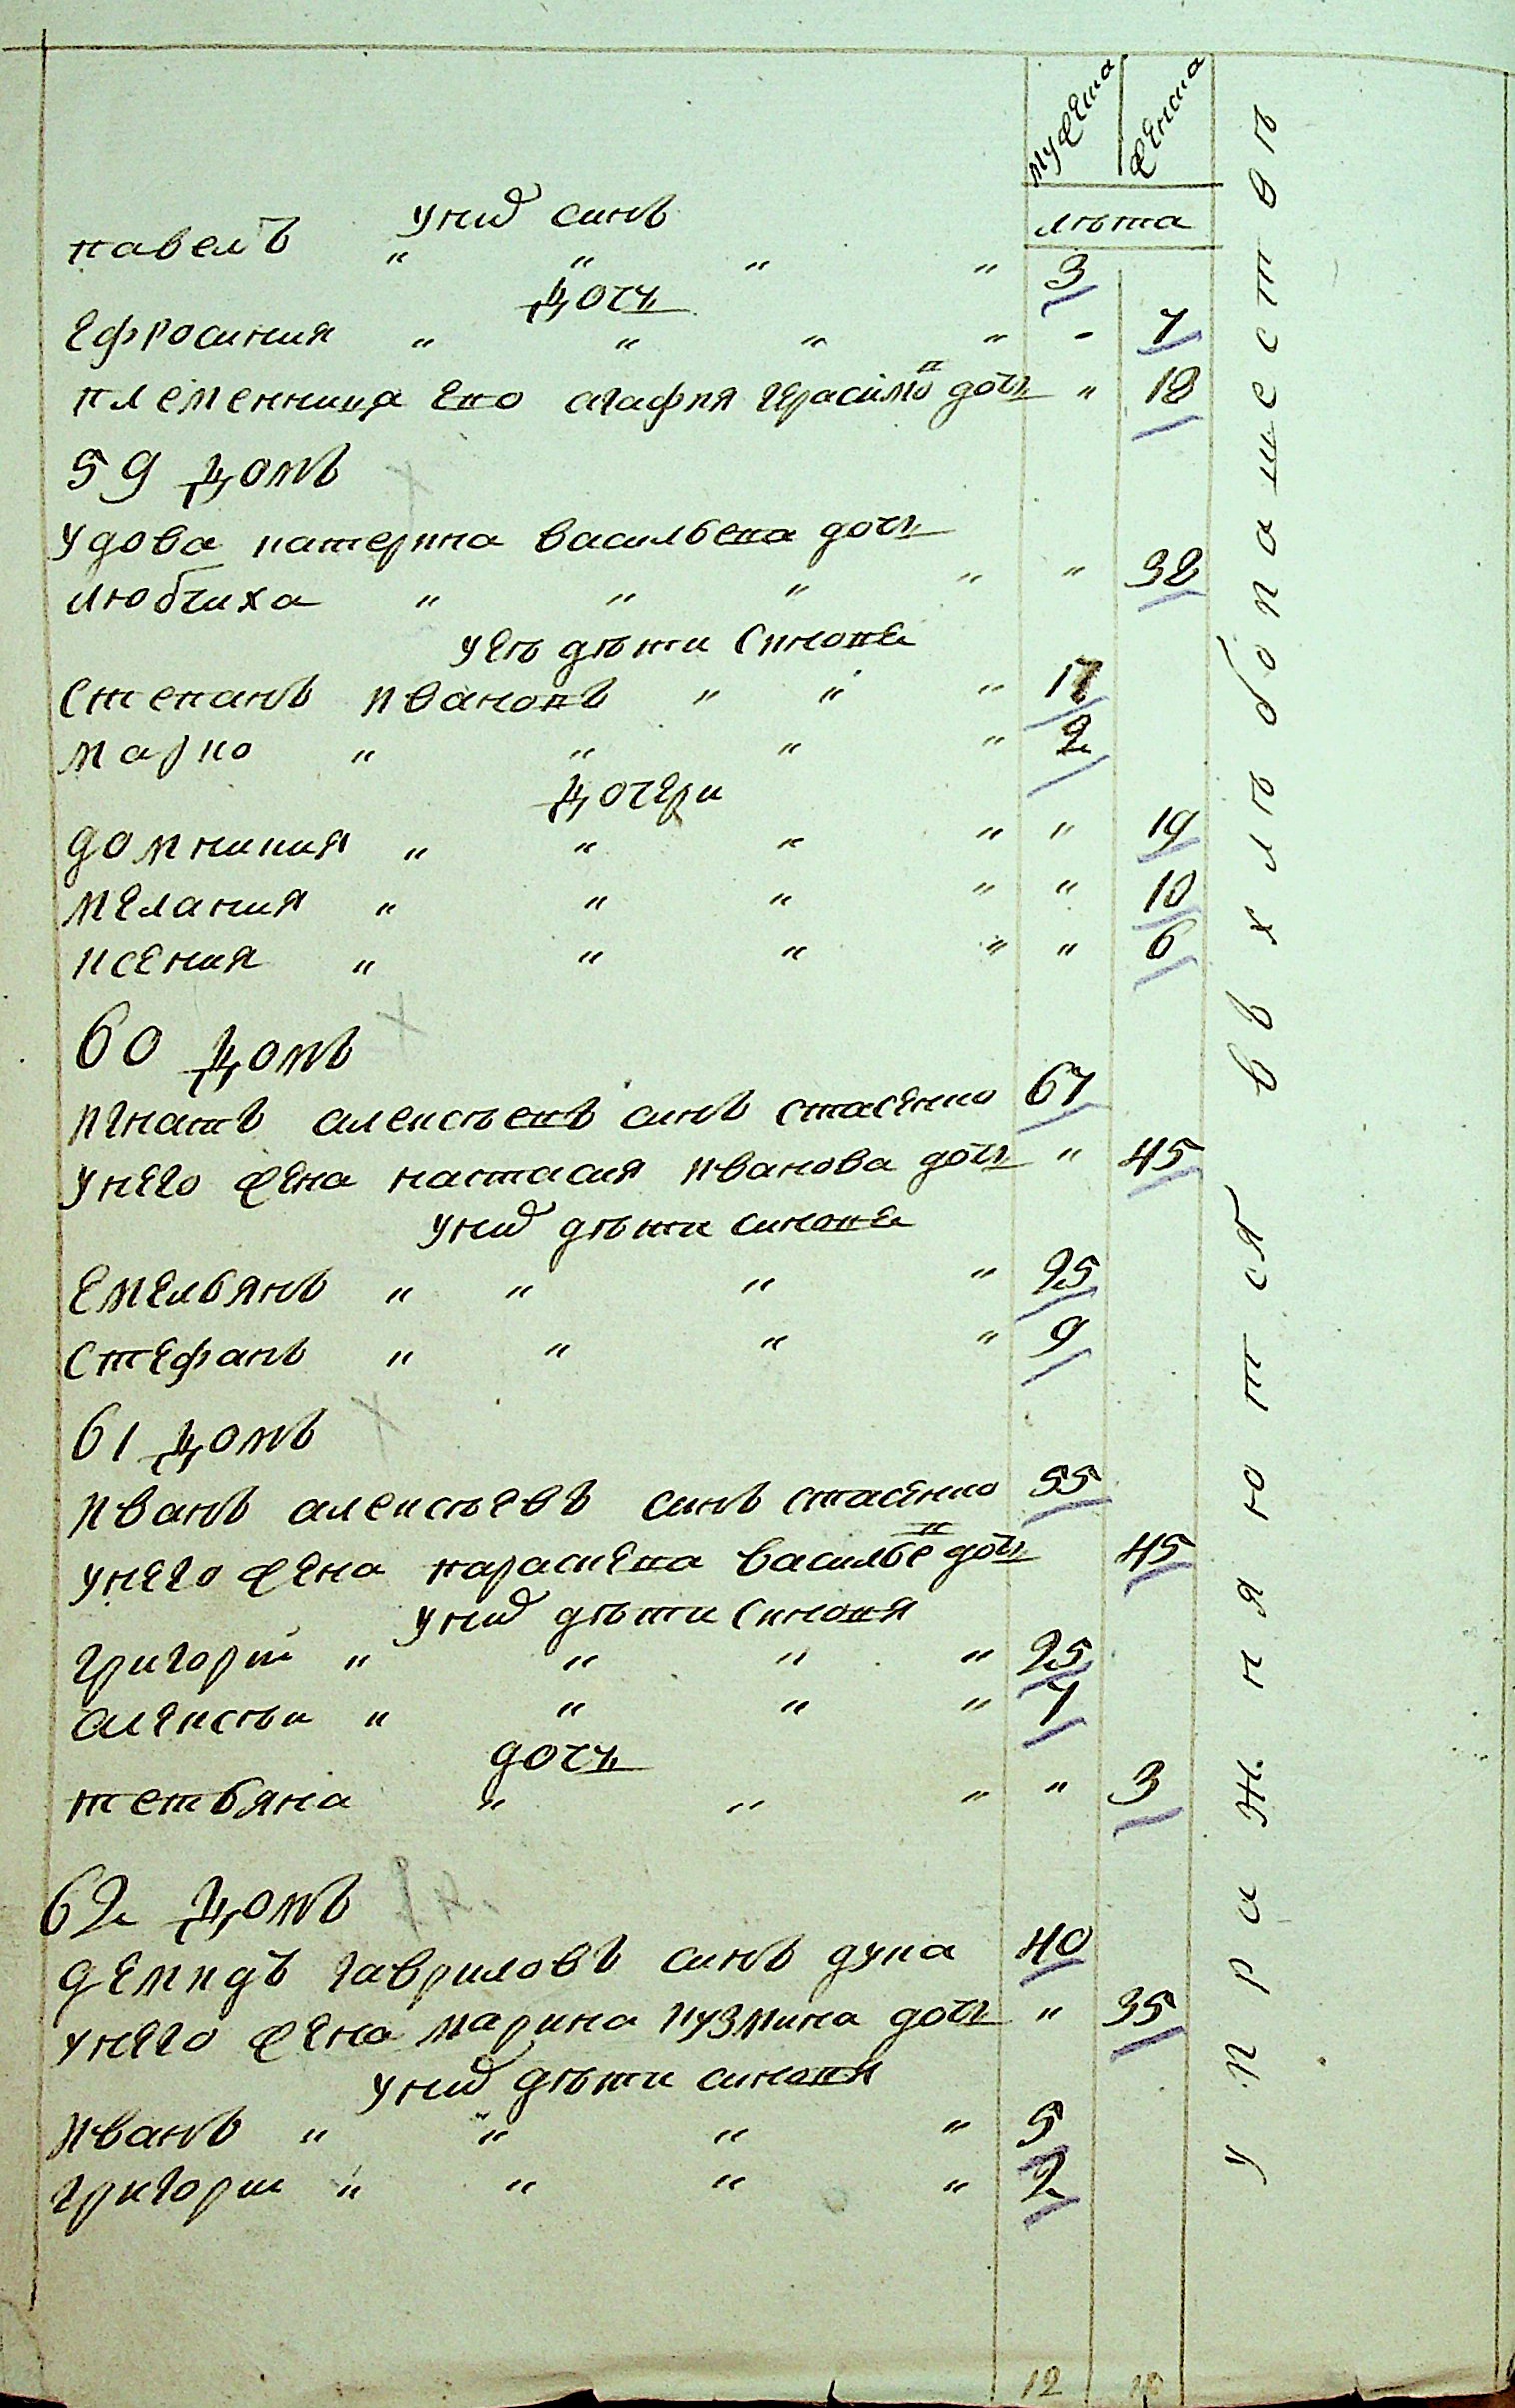 мужеска женска
лѣта
уних синъ
павелъ " " " " 3
Дочь
Ефросиния " " " " - 7
племенница Его агафия герасимов дочь " 18
59 Домъ
удова катерина васильева дочь
любчиха " " " " " 32
уеѣ дѣти Синове
Степанъ ивановъ " " " 17
марко " " " " 2
Дочери
домникия " " " " " 19
мелания " " " " " 10
ксения " " " " " 6
60 Домъ
игнатъ алексѣевъ синъ стасенко 67
унего жена настасия иванова дочь " 45
уних дѣти синове
Емельянъ " " " " 25
Стефанъ " " " " 9
61 Домъ
иванъ алексѣевъ синъ стасенко 55
унего жена параскева василев дочь 45
уних дѣти Синовя
григори " " " " 25
алексѣи " " " " 7
дочь
тетьяна " " " " 3
62 Домъ
демидъ гавриловъ синъ дука 40
унего жена марина кузмина дочь " 35
уних дѣти синовя
иванъ " " " " 5
григори " " " " 2
12
упражняются въ хлѣбопашествѣ